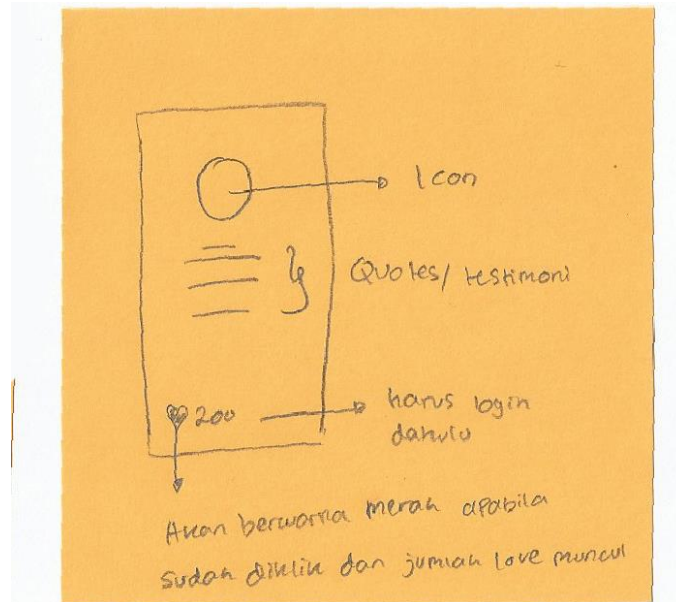 Icon
Quotes/ testimoni
200
harus login
dahulu
Akan berwarna merah apabila
sudah diklik dan jumlah love muncul